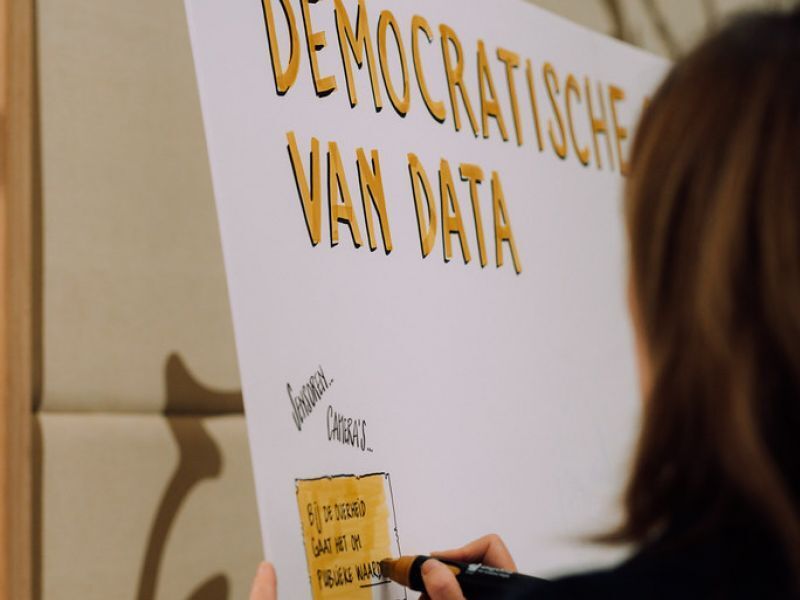 DEMOCRATISCHE
VAN DATA
SENSOREN...
CAMERA'S...
BIJ DE OVERHEID
GAAT HET OM
PUBLIEKE WAARD